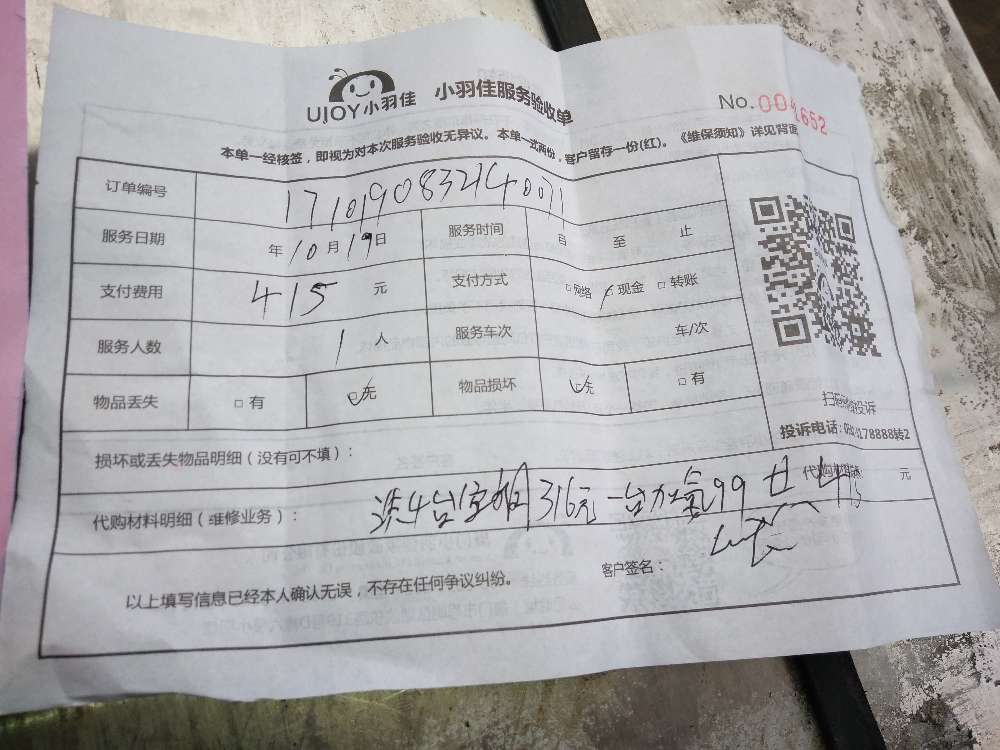 UJOY小羽佳 小羽佳服务验收单 No.
本单一经核签，即视为对本次服务验收无异议。本单一式两份，客户留存一份(红)。《维保须知》详见背面
订单编号 1710190832140071
服务日期 年10月19日 服务时间 自 至 止
支付费用 415 元 支付方式 □网络 现金 □转账
服务人数 1 人 服务车次 车/次
物品丢失 □有 无 物品损坏 无 □有
扫 投诉
投诉电话： 178888转2
损坏或丢失物品明细（没有可不填）：
代购材料明细（维修业务）： 洗4台空调316元一台加氟99 元
客户签名：
以上填写信息已经本人确认无误，不存在任何争议纠纷。